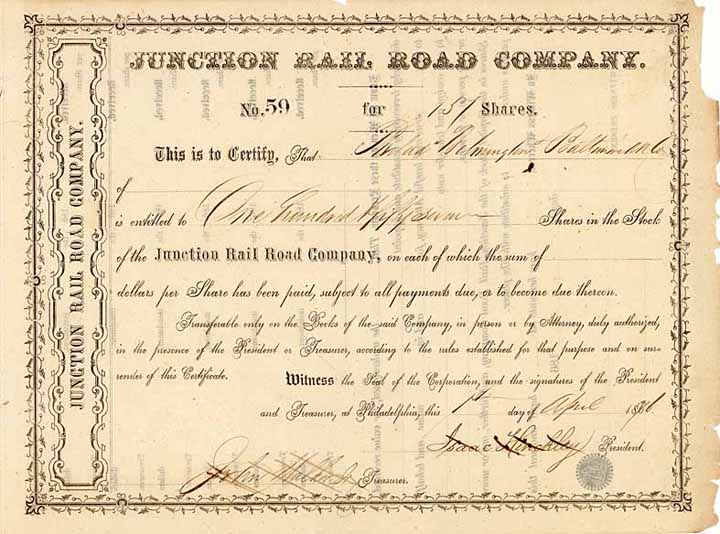 JUNCTION RAIL ROAD COMPANY.
JUNCTION RAIL ROAD COMPANY.
No. 59 for 157 Shares.
This is to Certify, That Philad. Wilmington & Baltimore RR Co
of
is entitled to One hundred fifty seven Shares in the Stock
of the Junction Rail Road Company, on each of which the sum of
dollars per Share has been paid, subject to all payments due, or to become due thereon.
Transferable only on the Books of the said Company, in person or by Attorney, duly authorized,
in the presence of the President or Treasurer, according to the rules established for that purpose and on sur-
render of this Certificate. Witness the Seal of the Corporation, and the signatures of the President
and Treasurer, at Philadelphia, this 1st day of April 1866.
Isaac Hinckley President.
Treasurer.